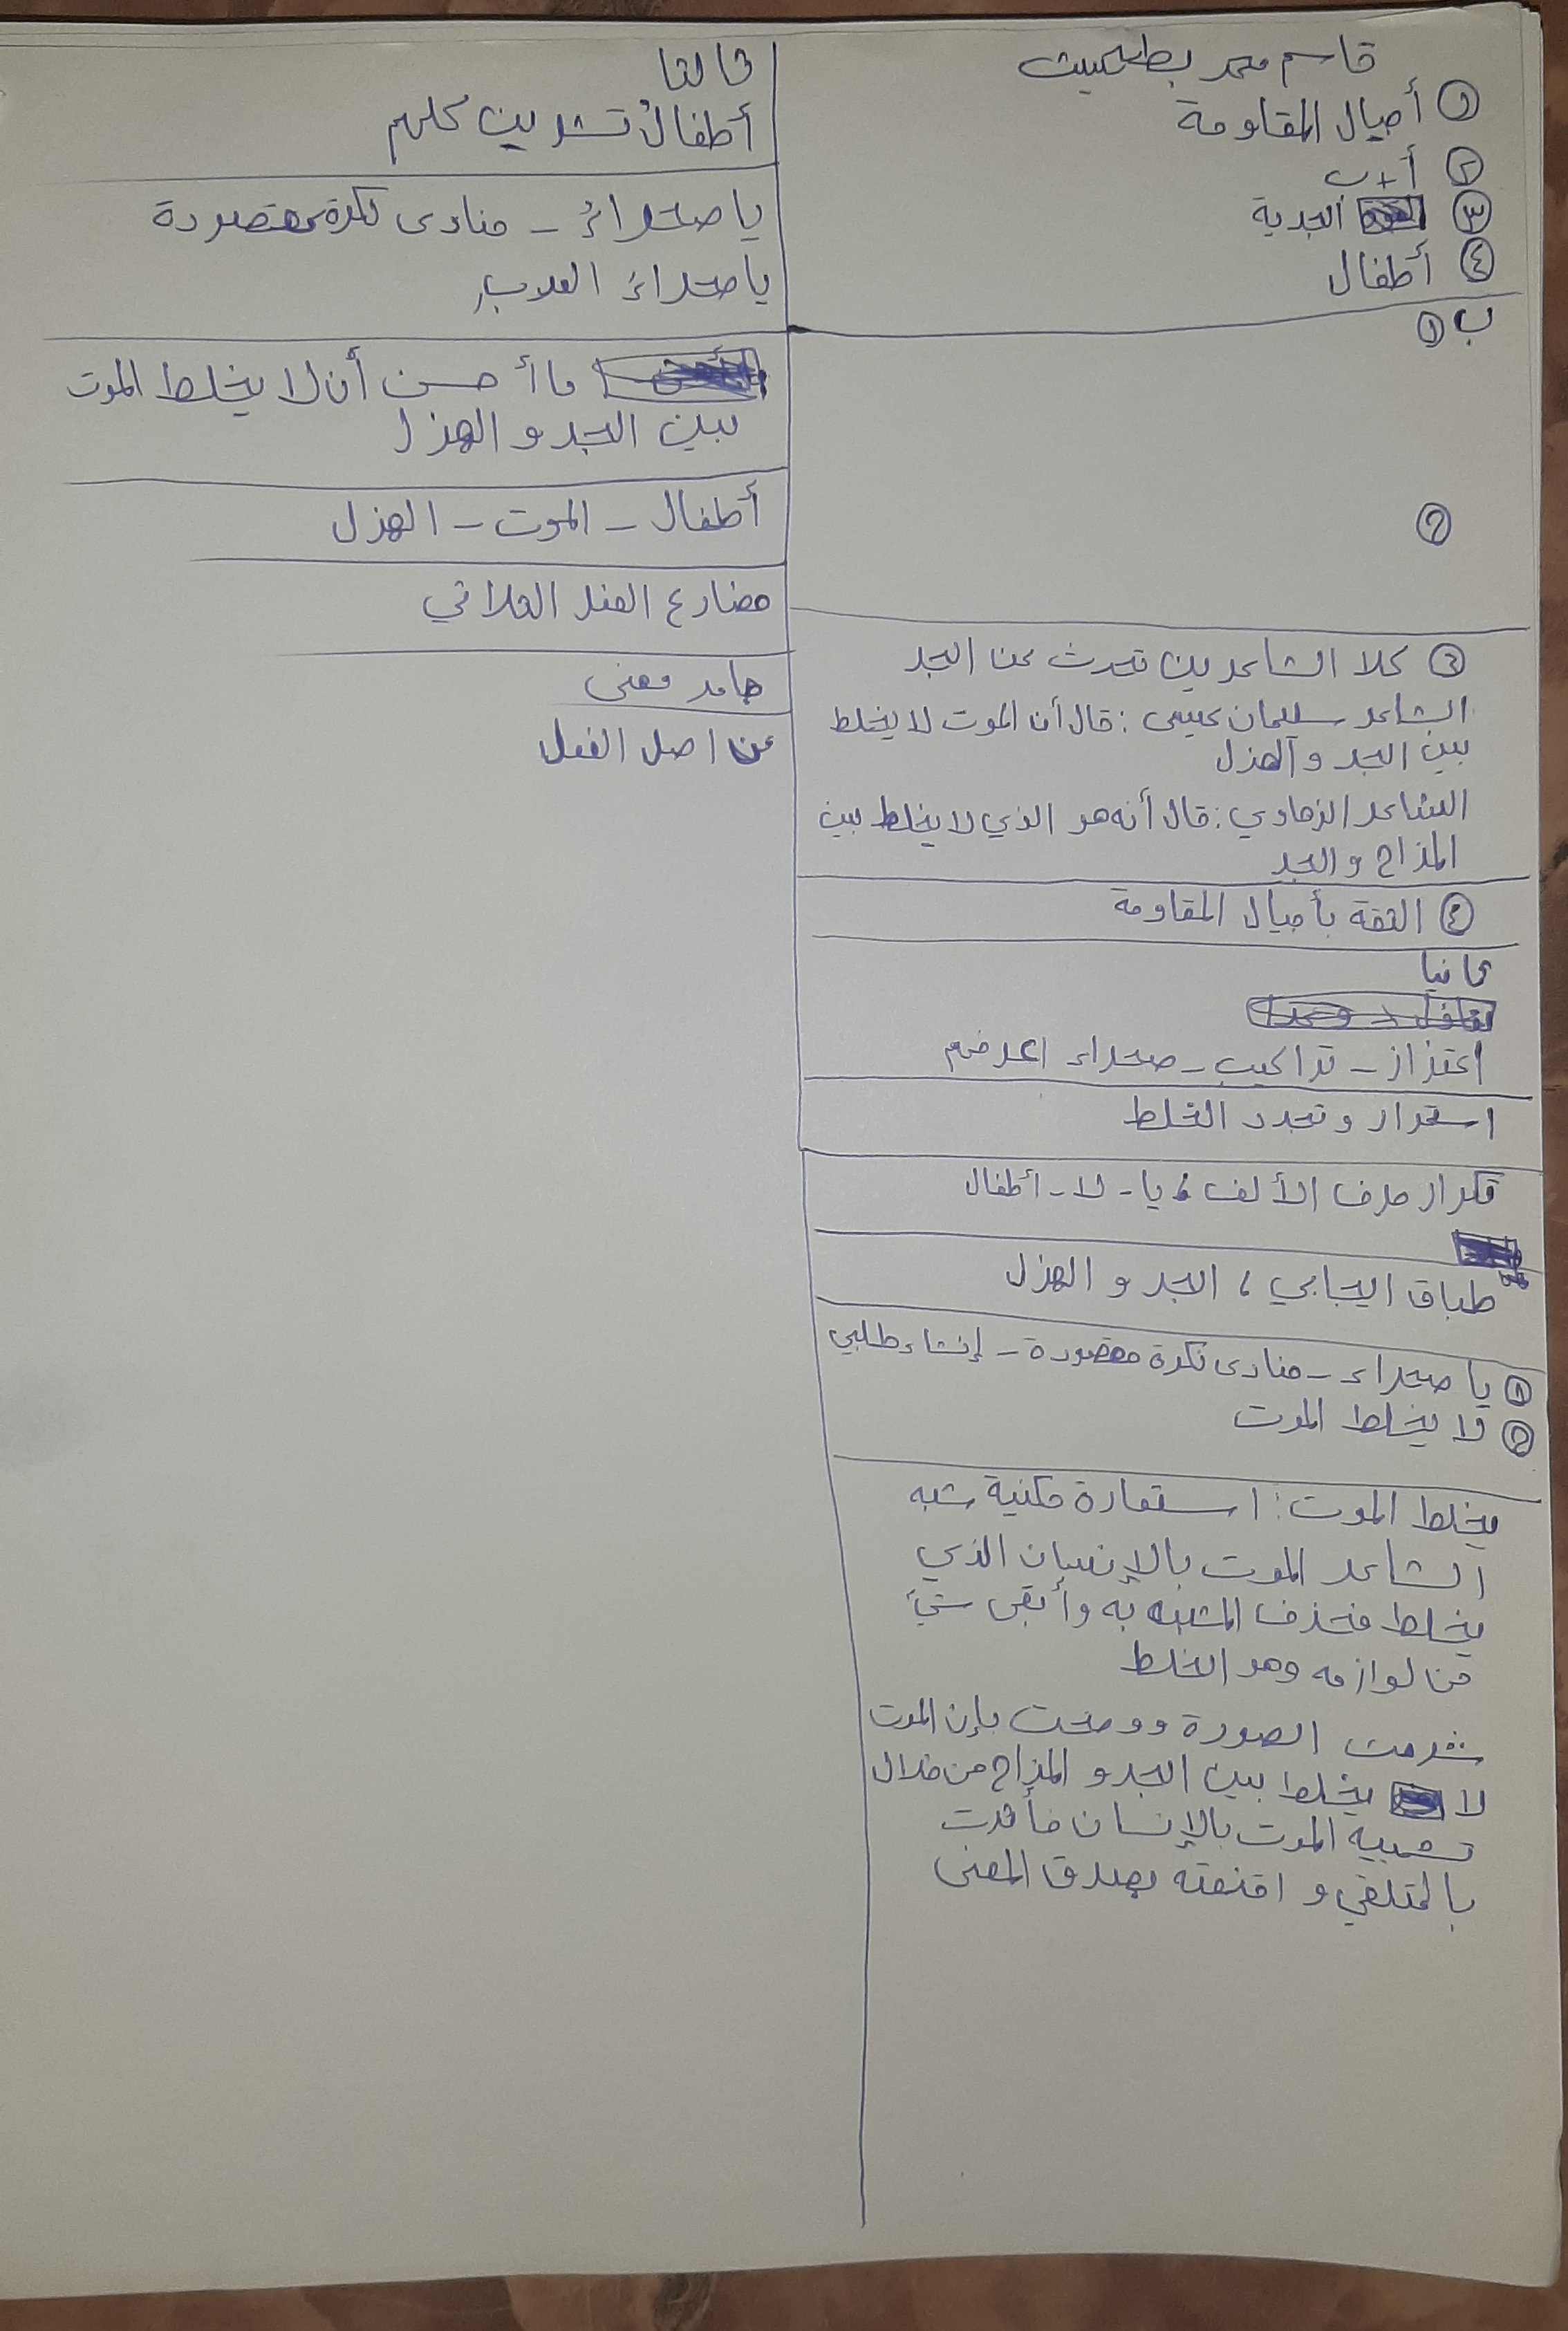 قاسم محمد بطحيش
① أجيال المقاومة
② أ+ب
③ الجدية
④ أطفال
ب ①
②
③ كلا الشاعرين تحدث عن الجد
الشاعر سليمان عيسى : قال أن الموت لا يخلط
بين الجد و الهزل
الشاعر الزهاوي : قال أنه هو الذي لا يخلط بين
المزاح و الجد
④ الثقة بأجيال المقاومة
ثانيا
اعتزاز - تراكيب - صحراء اعرضهم
استمرار و تجدد الخلط
تكرار حرف الألف ، يا - لا - أطفال
طباق ايجابي ، الجد و الهزل
① يا صحراء - منادى نكرة مقصودة - إنشاء طلبي
② لا يخلط الموت
يخلط الموت : استعارة مكنية شبه
الشاعر الموت بالإنسان الذي
يخلط فحذف المشبه به وأبقى شيئ
من لوازمه وهو الخلط
شرحت الصورة ووضحت بإن الموت
لا يخلط بين الجد و المزاح من خلال
تشبيه الموت بالإنسان فأثرت
بالمتلقي و اقنعته بصدق المعنى
ثالثا
أطفالُ تشرين كلهم
يا صحراءُ - منادى نكرة مقصودة
يا صحراءَ العرب
ما أحسن أن لا يخلط الموت
بين الجد و الهزل
أطفال - الموت - الهزل
مضارع الفعل الثلاثي
جامد معنى
عن اصل الفعل